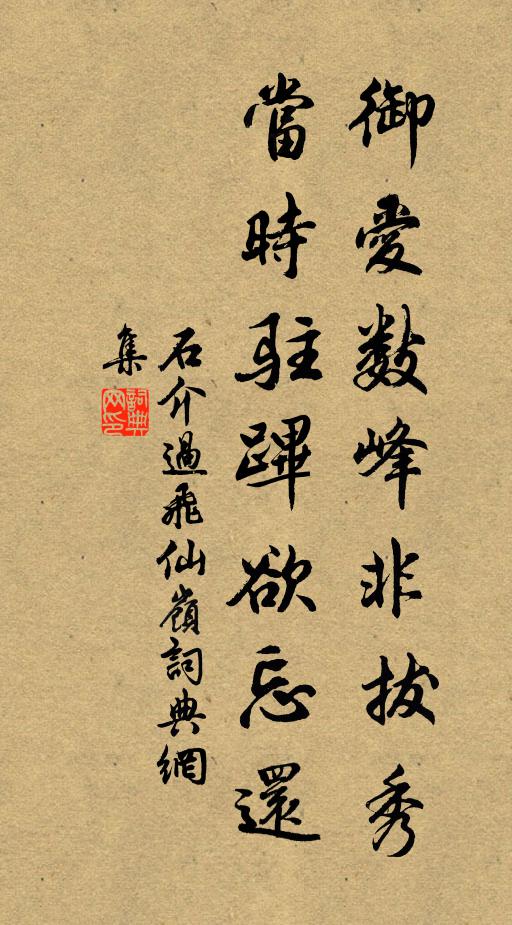 御愛数峰非拔秀
當時駐蹕欲忘還
石介過飛仙嶺詞典網
集
詞典
网印